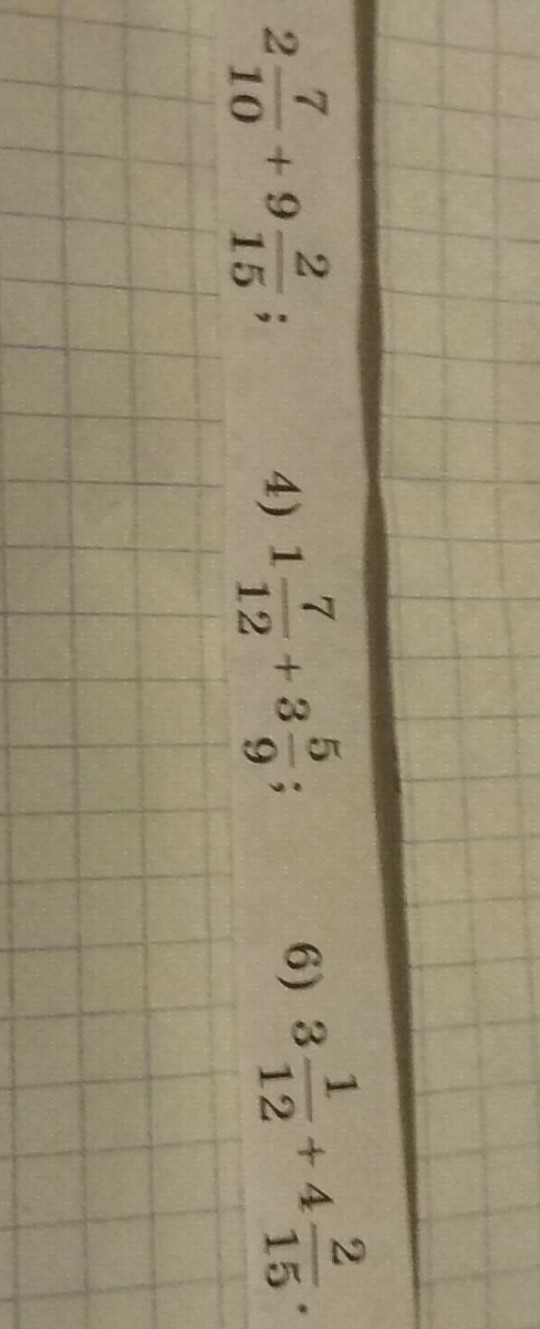 2 7/10 + 9 2/15; 4) 1 7/12 + 3 5/9; 6) 3 1/12 + 4 2/15.